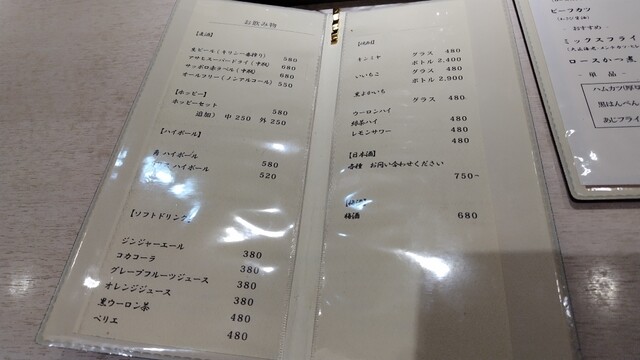 お飲み物
【麦酒】
生ビール(キリン一番搾り) 580
アサヒスーパードライ(中瓶) 680
サッポロ赤ラベル(中瓶) 680
オールフリー(ノンアルコール) 550
【ホッピー】
ホッピーセット 580
追加) 中 250 外 250
【ハイボール】
角 ハイボール 580
ハイボール 520
【ソフトドリンク】
ジンジャーエール 380
コカコーラ 380
グレープフルーツジュース 380
オレンジジュース 380
黒ウーロン茶 480
ペリエ 480
キンミヤ グラス 480
ボトル 2,400
いいちこ グラス 480
ボトル 2,900
黒よかいち グラス 480
ウーロンハイ 480
緑茶ハイ 480
レモンサワー 480
【日本酒】
各種 お問い合わせください
750~
梅酒 680
ビーフカツ
おすすめ
ミックスフライ
ロースかつ煮
- 単品 -
ハムカツ(厚
黒はんぺん
あじフライ